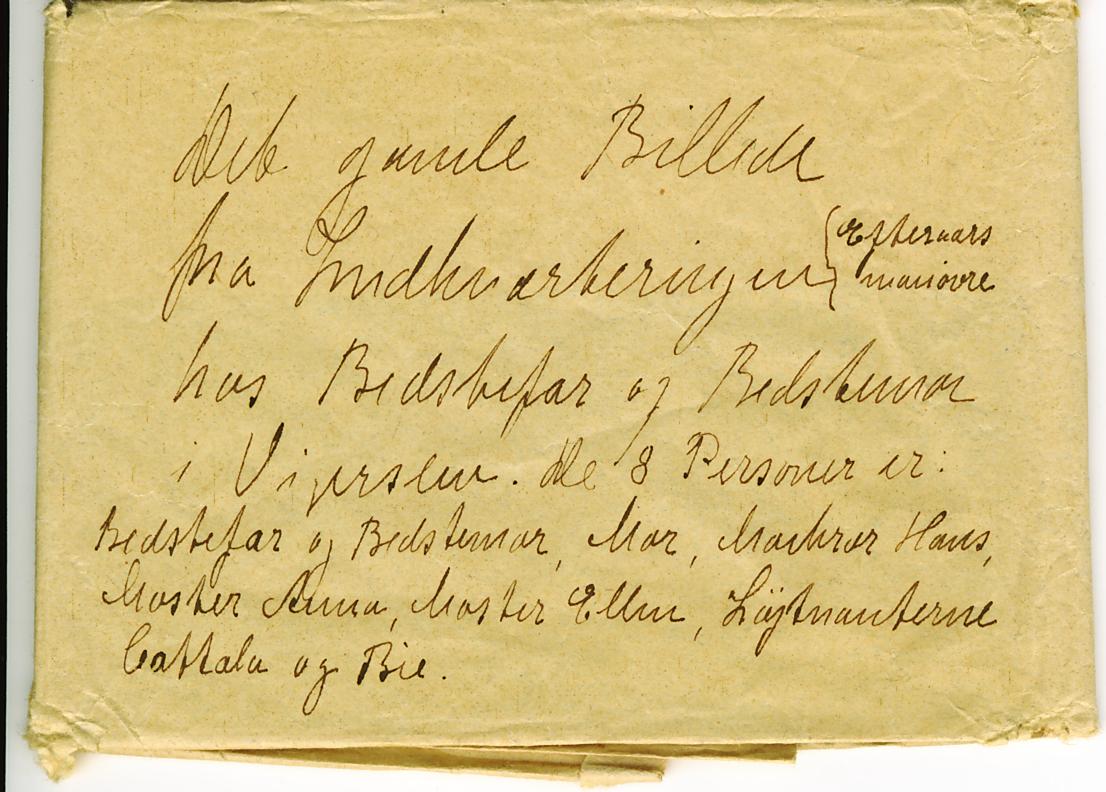 Det gamle Billede
fra Indkvarteringen (Efteraars
manøvre)
hos Bedstefar og Bedstemor
i Vigerslev. De 8 Personer er:
Bedstefar og Bedstemor, Mor, Morbror Hans,
Moster Anna, Moster Ellen, Løjtnanterne
og Bie.